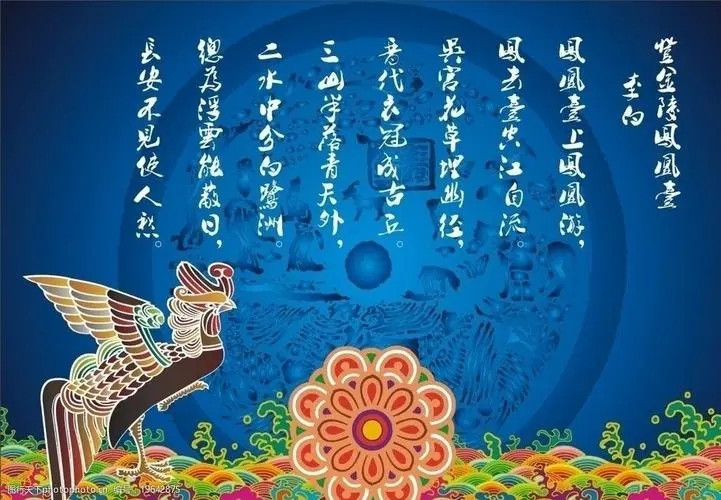 登金陵鳳凰臺
李白
鳳凰臺上鳳凰游，
鳳去臺空江自流。
吳宮花草埋幽徑，
晉代衣冠成古丘。
三山半落青天外，
二水中分白鷺洲。
總為浮雲能蔽日，
長安不見使人愁。
图行天下 photophoto.cn 编号：19642875